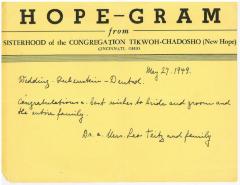 HOPE-GRAM
from
SISTERHOOD of the CONGREGATION TIKWOH-CHADOSHO (New Hope)
CINCINNATI, OHIO
May 27, 1949.
Wedding - Rubenstein -
Congratulations & best wishes to bride and groom and
the entire family.
Dr. & Mrs. Leo Teitz and family